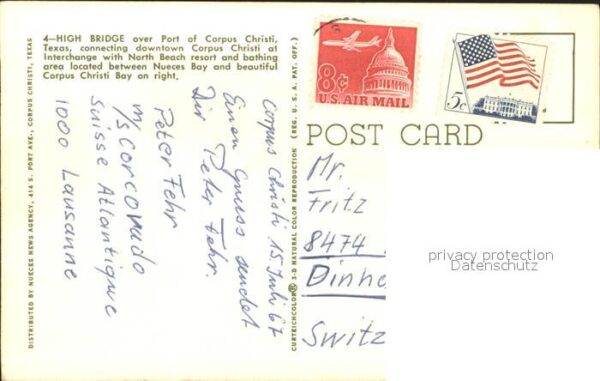 4—HIGH BRIDGE over Port of Corpus Christi,
Texas, connecting downtown Corpus Christi at
Interchange with North Beach resort and bathing
area located between Nueces Bay and beautiful
Corpus Christi Bay on right.
DISTRIBUTED BY NUECES NEWS AGENCY, 414 S. PORT AVE., CORPUS CHRISTI, TEXAS
Corpus Christi 15. Juli 67
Einen Gruss sendet
Dir Peter Fehr.
Peter Fehr
m/s Corcovado
Suisse Atlantique
1000 Lausanne
CURTEICHCOLOR® 3-D NATURAL COLOR REPRODUCTION (REG. U.S.A. PAT. OFF.)
8¢
U.S. AIR MAIL
5c
POST CARD
Mr.
Fritz
8474
Dinh
Switz
privacy protection
Datenschutz